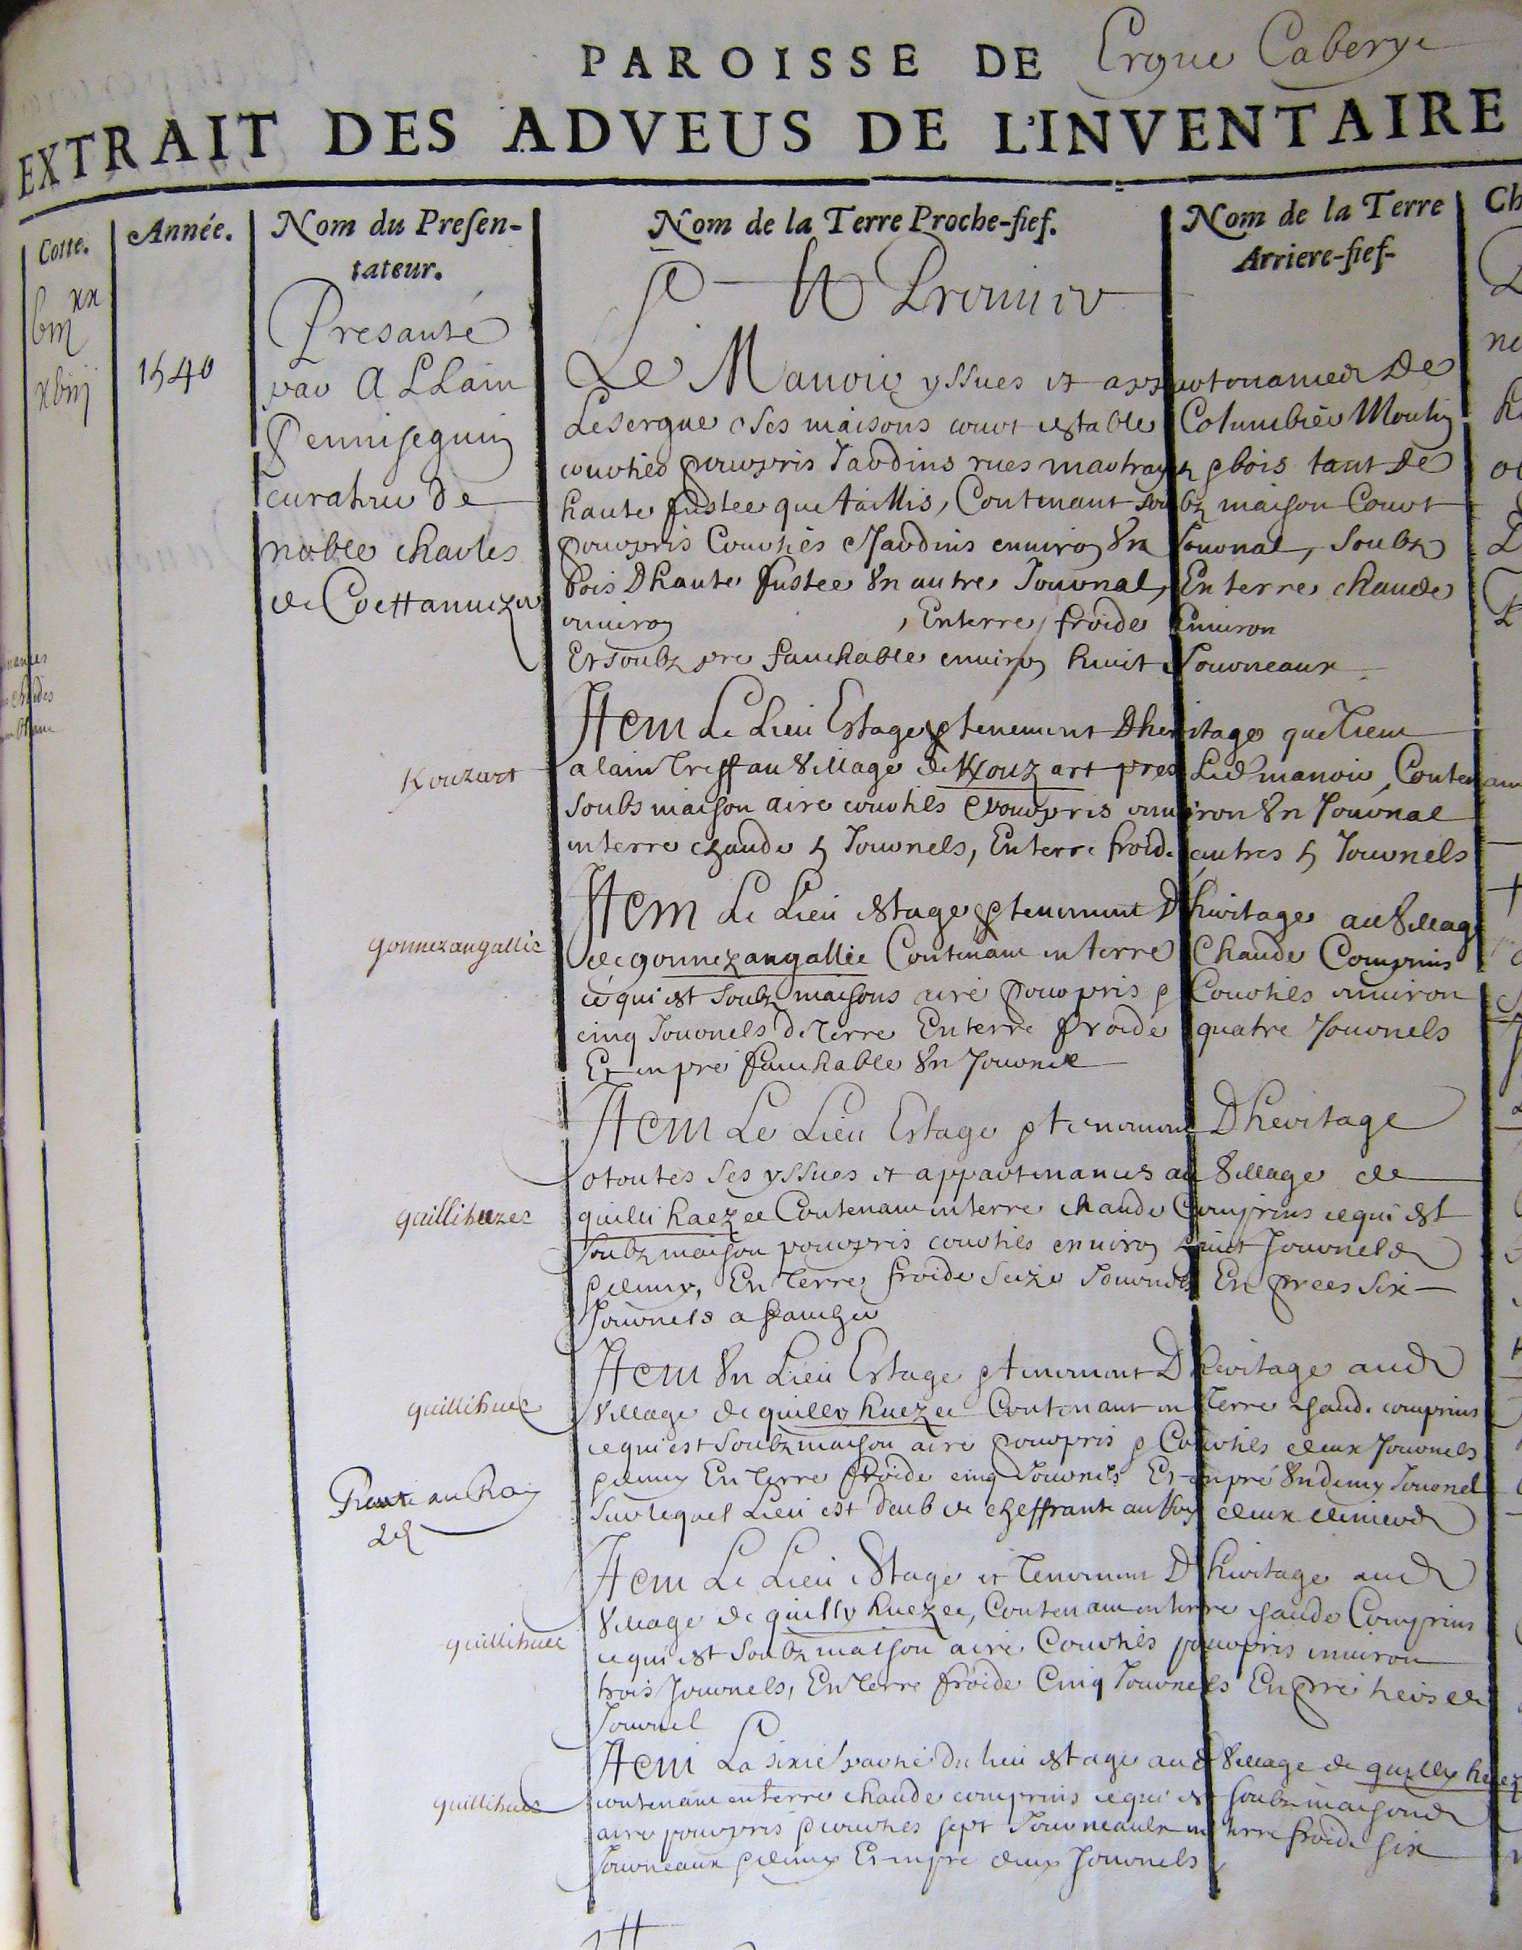 PAROISSE DE Ergue Caberye
EXTRAIT DES ADVEUS DE L'INVENTAIRE
Cotte.
Année.
Nom du Presen-
tateur.
Nom de la Terre Proche-fief.
Nom de la Terre
Arriere-fief.
Ch
xx
xbiij
1540
Presanté
par Allain
Pennseguin
curateur de
noble charles
de Coettannezre
Et Premier
Le Manoir yssues et appartenances De
Lesergue & ses maisons court estable Columbier Moulin
courtieo pourpris Jardins rues & bois tant De
haute fustee que taillis, Contenant soubz maison Court
pourpris Courties & Jardins environ Un Journal, soubz
bois Dhaute fustee Un autre Journal, En terre chaude
environ , En terre froide Environ
Et soubz pre fauchable environ huict Journeaux
Item Le Lieu Estage & tenement Dheritage que Tient
alain Treff au Village de Kouzart pres Led manoir, Contenam
soubs maison aire courtils & pourpris environ Un Journal
en terre chaude 5 Journels, En terre froide autres 5 Journels
Kouzart
Item Le Lieu estage & tenement Dheritage au Villag
de gonnezangallec Contenant en terre Chaude Comprins
ce qui est soubz maisons aire pourpris & Courtils environ
cinq Journels de Terre En terre froide quatre Journels
Et en pre fauchable Un Journel
gonnezangallec
Item Le Lieu Estage & tenement Dheritage
o toutes ses yssues et appartenances au Village de
quilli haezec Contenant en terre chaude Comprins ce qui est
soubz maison pourpris courtils environ huict Journels
& demy, En Terre froide seize Journels En prees six
Journels a faucher
quillihuezec
Item Un Lieu Estage & tenement Dheritage aud
Village de quilly huezec Contenant en Terre chaude comprins
ce qui est soubz maison aire pourpris & Courtils deux Journels
& demy En Terre froide cinq Journels Et en pré Un demy Journel
sur lequel Lieu est deub de cheffrante au Roy deux deniers
quillihuec
Rante au Roy
2d
Item Le Lieu Estage et Tenement Dheritage aud
Village de quilly huezec, Contenant en terre chaude Comprins
ce qui est soubz maison aire Courtils pourpris environ
trois Journels, En Terre froide Cinq Journels En pré
Journel
quillihuec
Item La sixie partie du lieu estage aud Village de quilly huez
contenant en terre chaude comprins ce qui est soubz maisons
aire pourpris & courtils sept Journeaulx en terre froide six
Journeaux & demy Et en pre deux Journels
quillihuec